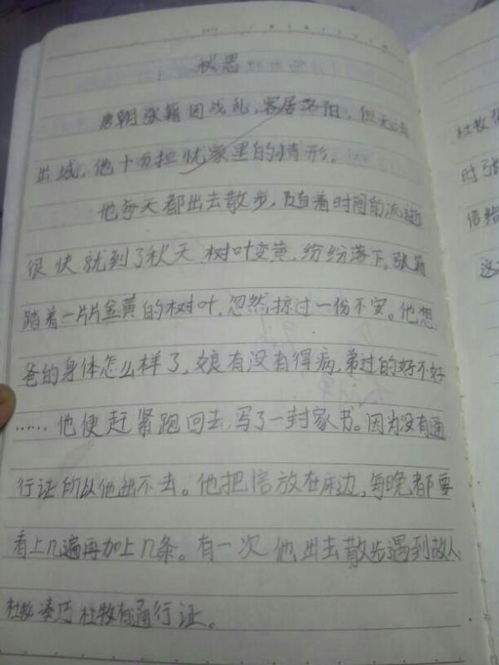 秋思
唐朝张籍因战乱,客居洛阳,但无法
出城,他十分担忧家里的情形。
他每天都出去散步,随着时间的流逝
很快就到了秋天,树叶变黄,纷纷落下。张籍
踏着一片片金黄的树叶,忽然掠过一份不安。他想
爸的身体怎么样了,娘有没有得病,弟过的好不好
……他便赶紧跑回去,写了一封家书。因为没有通
行证所以他出不去。他把信放在床边,每晚都要
看上几遍再加上几条。有一次他出去散步遇到故人
杜牧凑巧杜牧有通行证。
杜牧
时